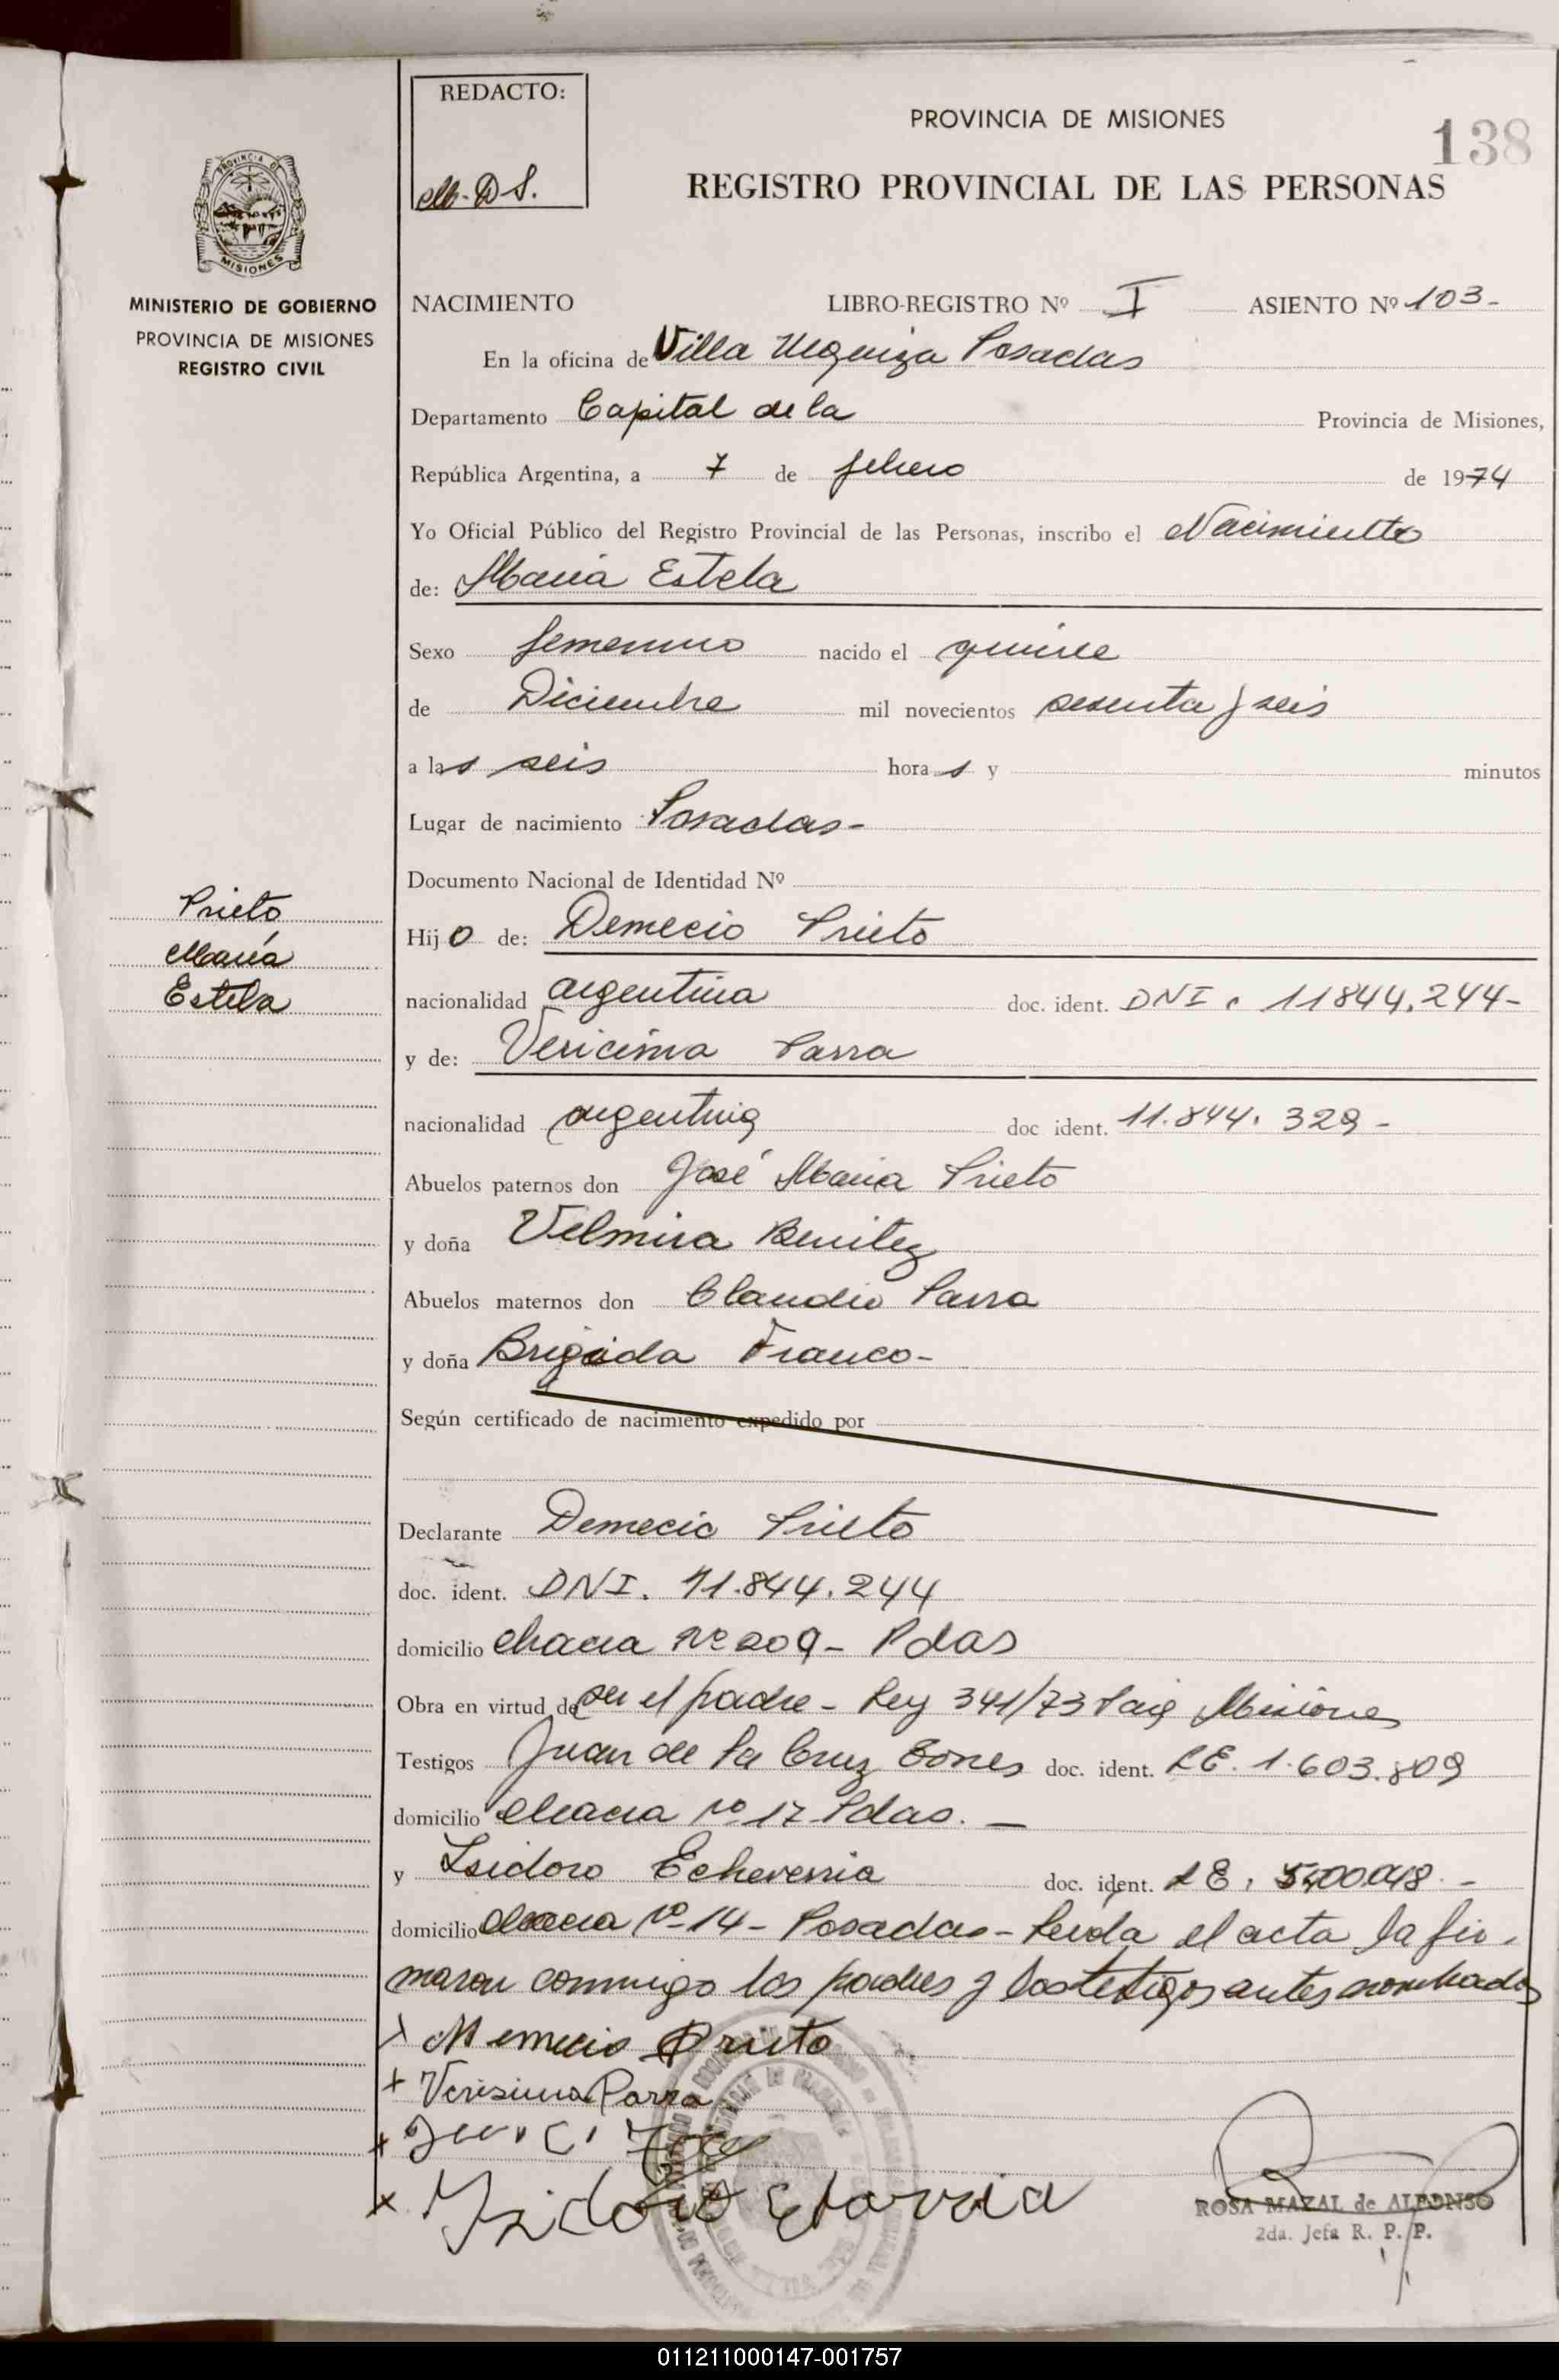 REDACTO:
PROVINCIA DE MISIONES
138
REGISTRO PROVINCIAL DE LAS PERSONAS
PROVINCIA DE
MISIONES
MINISTERIO DE GOBIERNO
PROVINCIA DE MISIONES
REGISTRO CIVIL
NACIMIENTO LIBRO-REGISTRO Nº I ASIENTO Nº 103-
En la oficina de Villa Urquiza Posadas
Departamento Capital de la Provincia de Misiones,
República Argentina, a 7 de febrero de 1974
Yo Oficial Público del Registro Provincial de las Personas, inscribo el Nacimiento
de: María Estela
Sexo femenino nacido el quince
de Diciembre mil novecientos sesenta y seis
a las seis horas y minutos
Lugar de nacimiento Posadas-
Documento Nacional de Identidad Nº
Prieto
María
Estela
Hijo de: Demecio Prieto
nacionalidad argentina doc. ident. DNI. 11844.244-
y de: Vericima Parra
nacionalidad argentina doc ident. 11.844.329-
Abuelos paternos don José María Prieto
y doña Velmira Benitez
Abuelos maternos don Claudio Parra
y doña Brigida Franco-
Según certificado de nacimiento expedido por
Declarante Demecio Prieto
doc. ident. DNI. 11.844.244
domicilio chacra Nº 209- Pdas
Obra en virtud de ser el padre - Ley 341/73 Misiones
Testigos Juan de la Cruz doc. ident. LE. 1.603.809
domicilio chacra Nº 17 Pdas.
y Isidoro Echeverria doc. ident. LE.
domicilio chacra Nº 14 - Posadas - Leida el acta la fir-
maron conmigo los padres y los testigos antes nombrados
Prieto
+ Verisima Parra
+
x Isidoro
ROSA MAZAL de ALFONSO
2da. Jefa R. P. P.
011211000147-001757